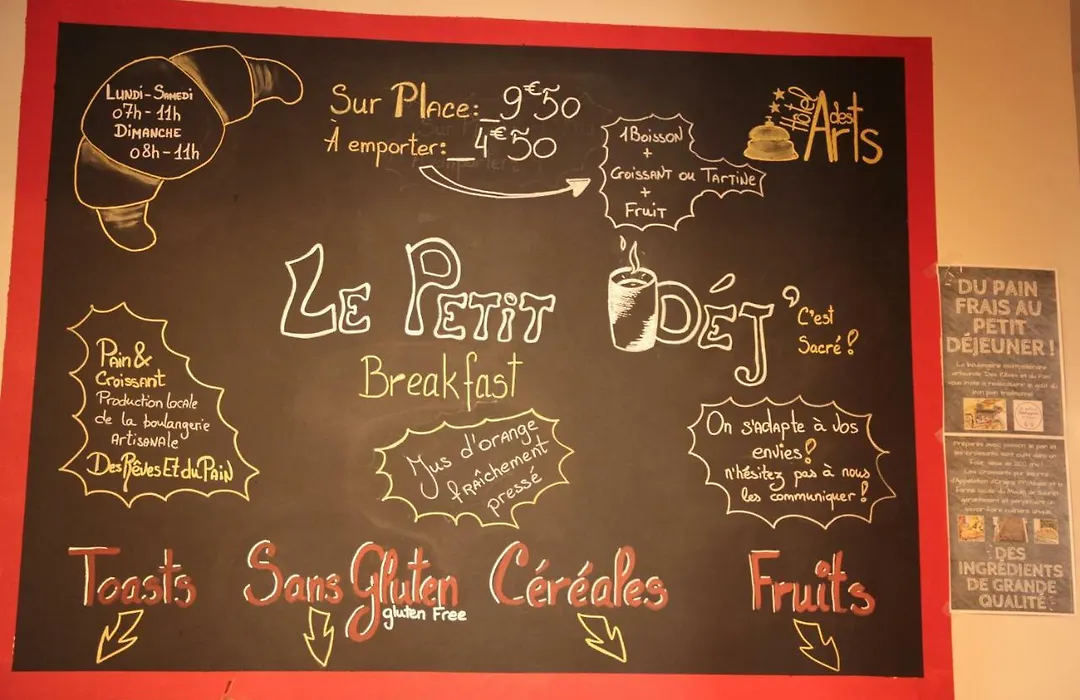 LUNDI-SAMEDI
07h-11h
DIMANCHE
08h-11h
Sur Place: 9€50
À emporter: 4€50
1 Boisson
+
Croissant ou Tartine
+
Fruit
Hôtel
des
Arts
Le Petit DÉJ'
C'est
Sacré !
Breakfast
Pain &
Croissant
Production locale
de la boulangerie
Artisanale
Des Rêves Et du Pain
Jus d'orange
fraîchement
pressé
On s'adapte à vos
envies !
n'hésitez pas à nous
les communiquer !
Toasts
Sans Gluten
gluten Free
Céréales
Fruits
DU PAIN
FRAIS AU
PETIT
DÉJEUNER !
DES
INGRÉDIENTS
DE GRANDE
QUALITÉ